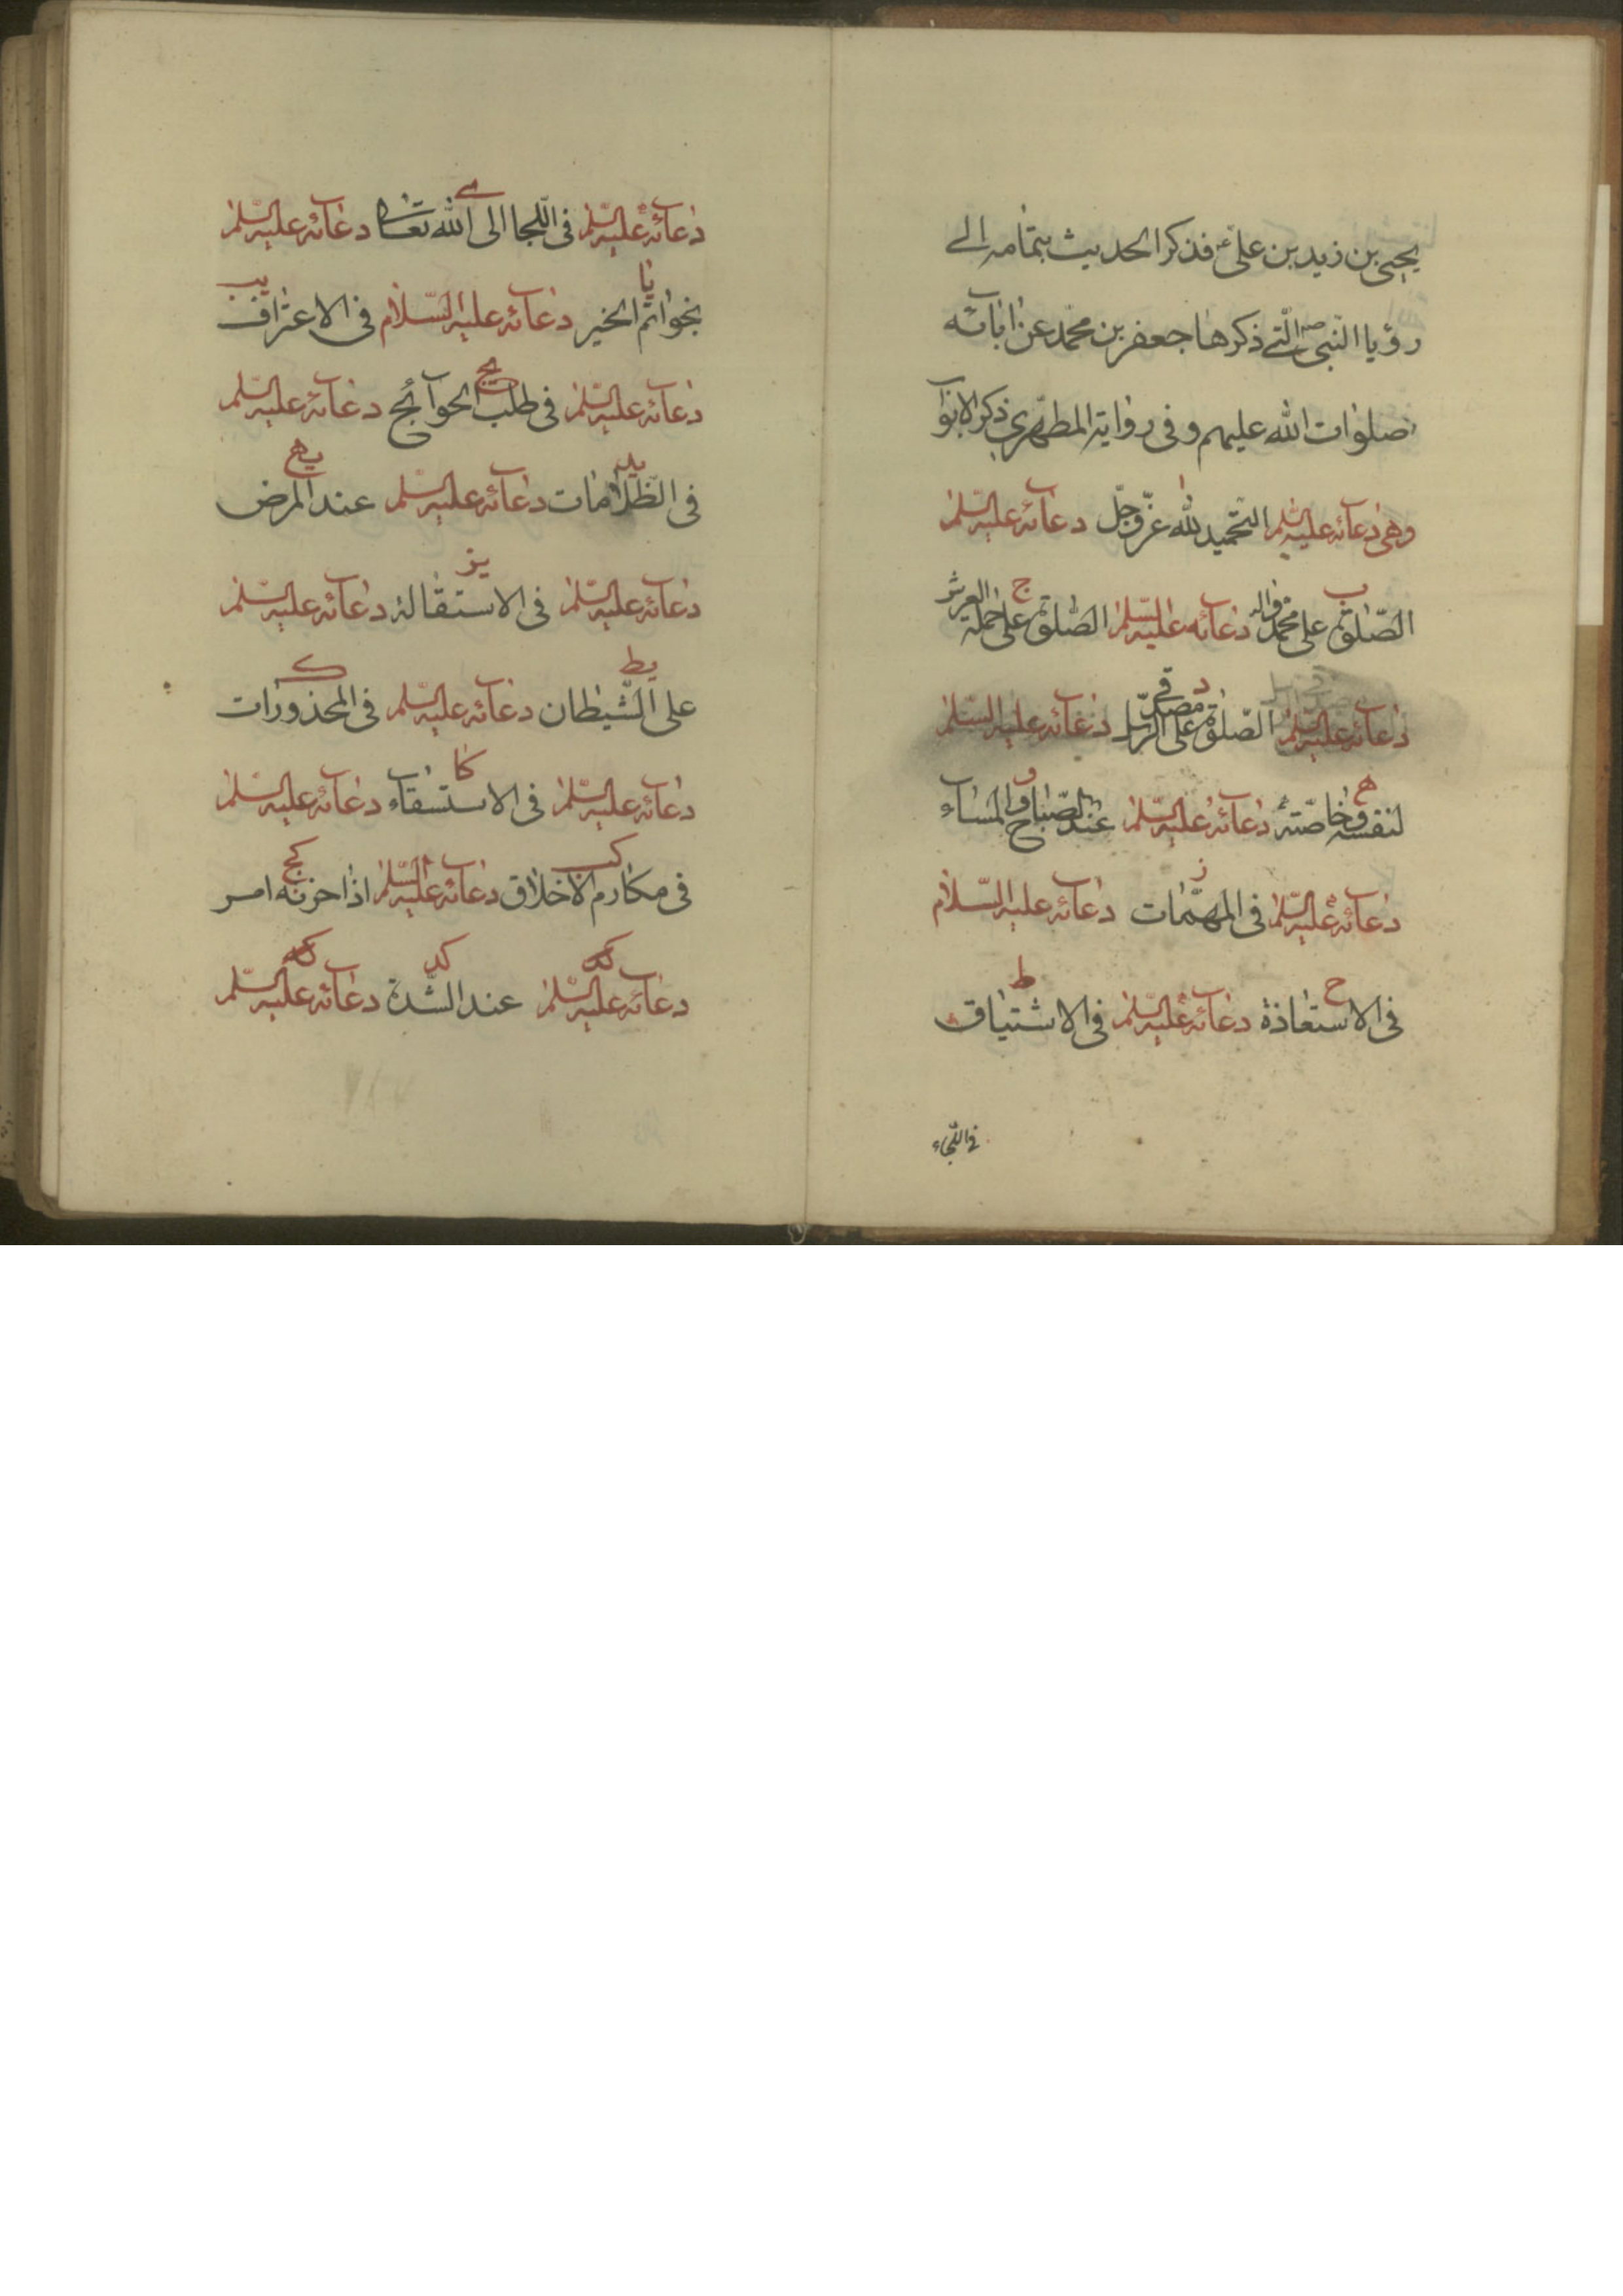 يحيى بن زيد بن علي ع فذكر الحديث بتمامه الى
رؤيا النبى ص التے ذكرها جعفر بن محمد عن ابائه
صلوات الله عليهم وفى رواية المطهرى ذكر الابواب
وهى دعائه عليه السلم التحميد لله عز وجل دعائه عليه السلم
ا
الصلوة على محمد واله دعائه عليه السلم الصلوة على حملة العرش
ب ج
دعائه عليه السلم الصلوة على مصدقى الرسل دعائه عليه السلم
د
لنفسه وخاصته دعائه عليه السلم عند الصباح والمساء
ه و
دعائه عليه السلم فى المهمات دعائه عليه السلام
ز
فى الاستعاذة دعائه عليه السلم فى الاشتياق
ح ط
فى اللجاء
دعائه عليه السلم فى اللجا الى الله تعالى دعائه عليه السلم
ى
بخواتم الخير دعائه عليه السلام فى الاعتراف
يا يب
دعائه عليه السلم فى طلب الحوآئج دعائه عليه السلم
يج
فى الظلامات دعائه عليه السلم عند المرض
يد يه
دعائه عليه السلم فى الاستقالة دعائه عليه السلم
يز
على الشيطان دعائه عليه السلم فى المحذورات
يط ك
دعائه عليه السلم فى الاستسقاء دعائه عليه السلم
كا
فى مكارم الاخلاق دعائه عليه السلم اذا حزنه امر
كب كج
دعائه عليه السلم عند الشدة دعائه عليه السلم
كد